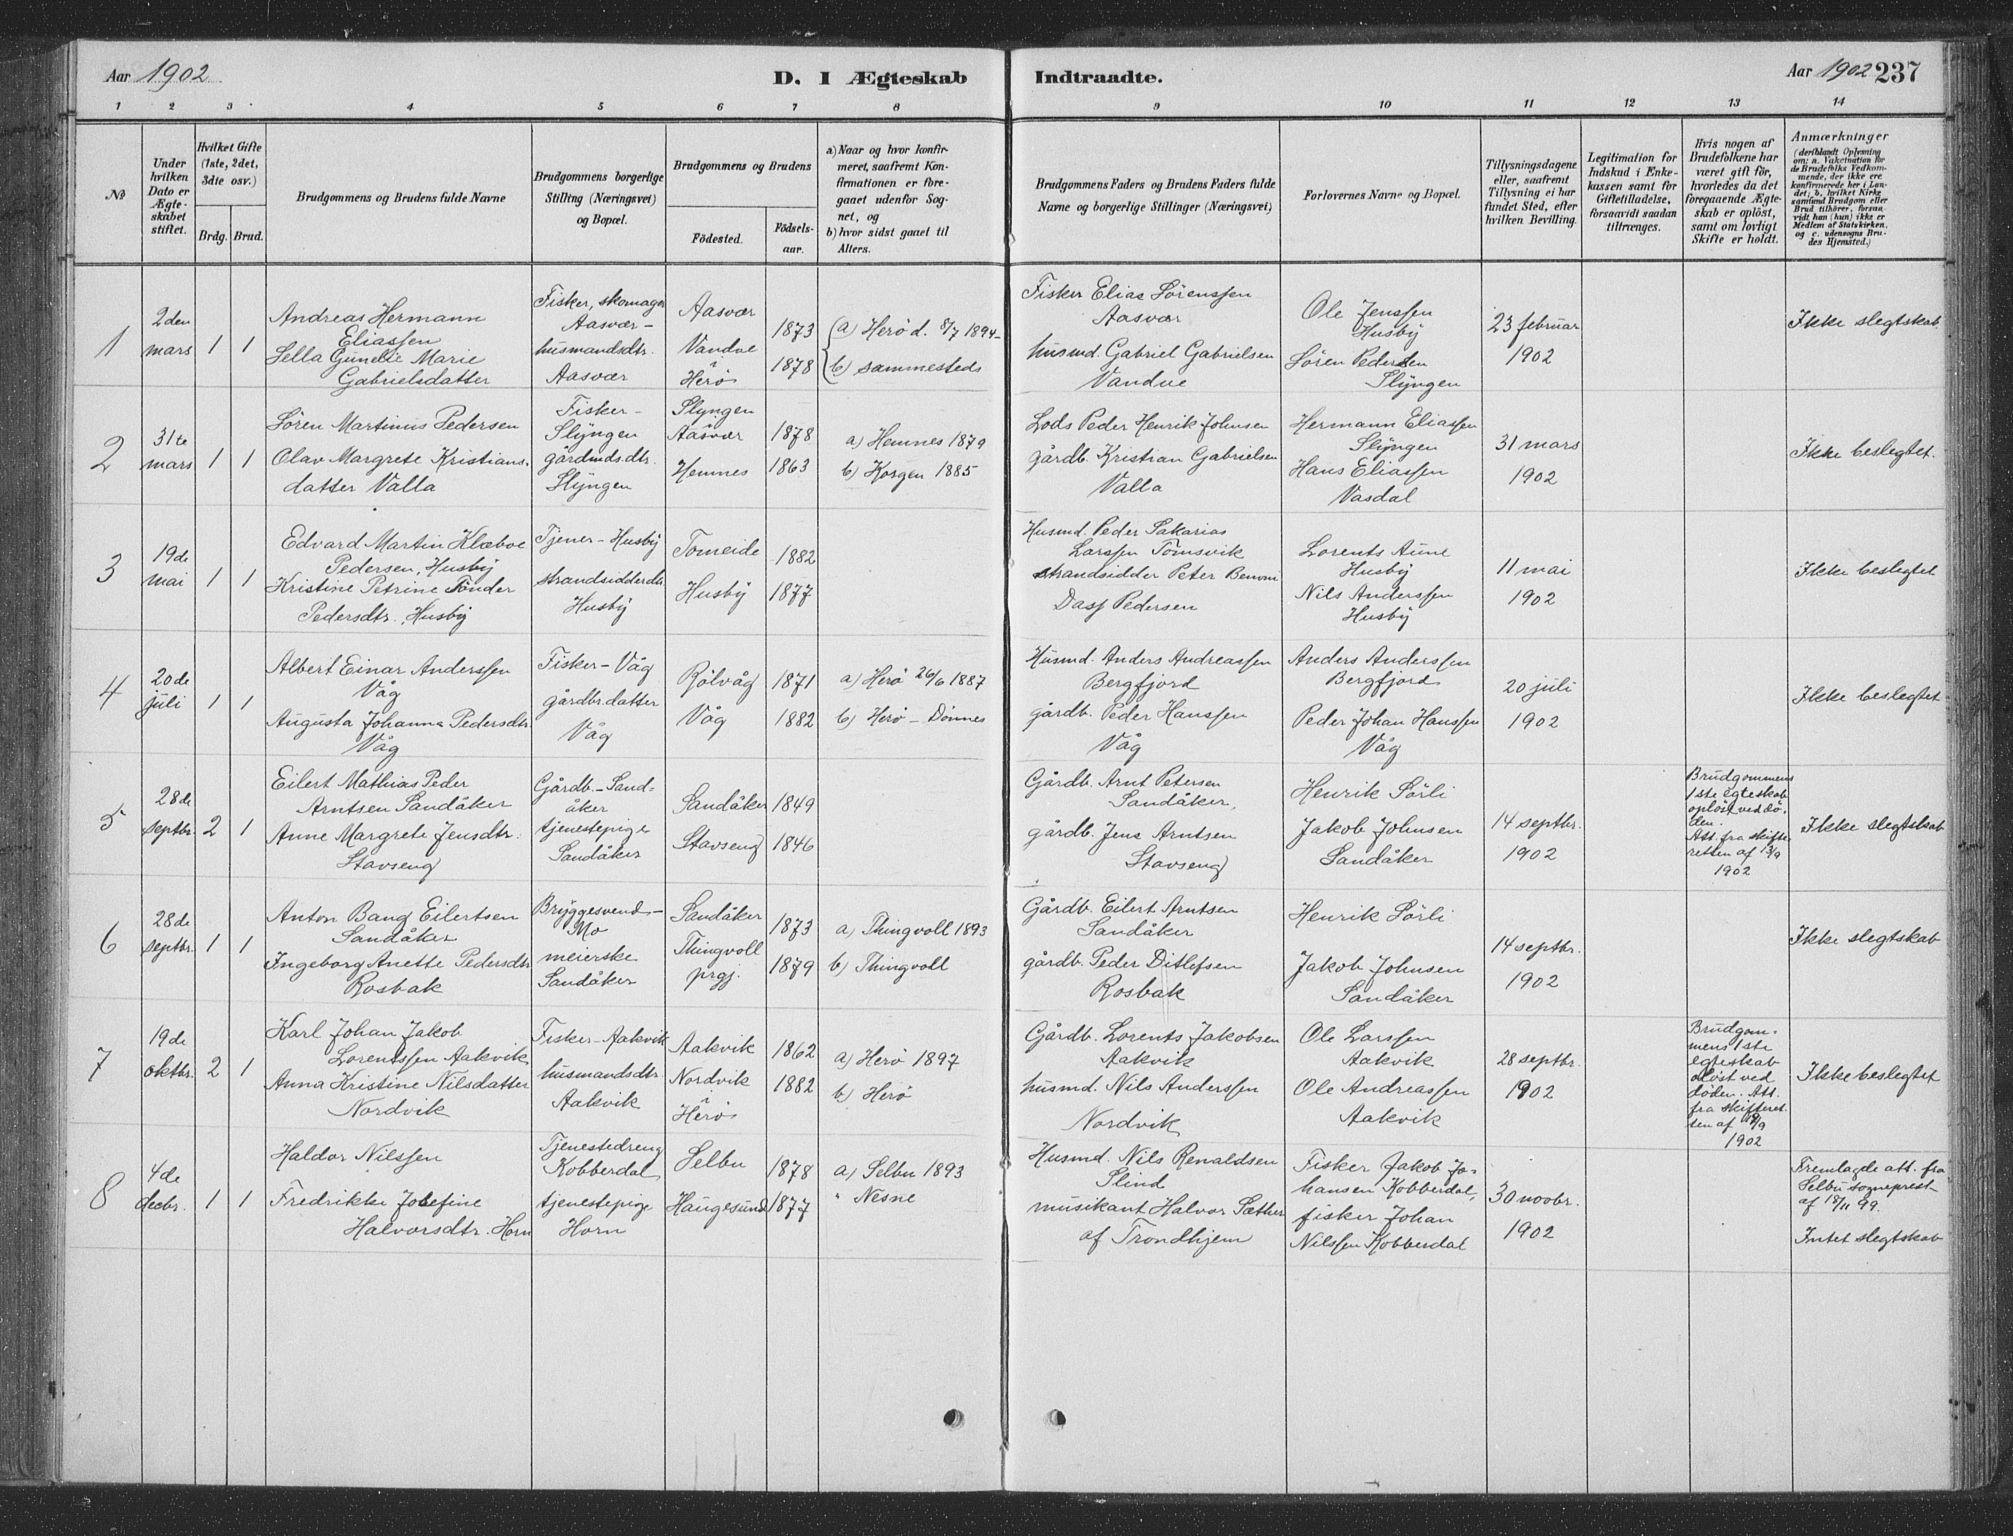 Aar 1902
D. I Ægteskab
Indtraadte.
Aar 1902 237
1 2 3 4 5 6 7 8 9 10 11 12 13 14
№
Under hvilken Dato er Ægteskabet stiftet.
Hvilket Gifte (1ste, 2det, 3die osv.)
Brdg. Brud.
Brudgommens og Brudens fulde Navne
Brudgommens borgerlige Stilling (Næringsvei) og Bopæl.
Brudgommens og Brudens
Födested.
Födsels-aar.
a) Naar og hvor konfirmeret, saafremt Konfirmationen er foregaaet udenfor Sognet, og
b) hvor sidst gaaet til Alters.
Brudgommens Faders og Brudens Faders fulde Navne og borgerlige Stillinger (Næringsvei)
Forlovernes Navne og Bopæl.
Tillysningsdagene eller, saafremt Tillysning ei har fundet Sted, efter hvilken Bevilling.
Legitimation for Indskud i Enkekassen samt for Giftetilladelse, forsaavidt saadan tiltrænges.
Hvis nogen af Brudefolkene har været gift för, hvorledes da det foregaaende Ægteskab er oplöst, samt om lovligt Skifte er holdt.
Anmærkninger
(deriblandt Oplysning om: a. Vakcination for de Brudefolks Vedkommende, der ikke ere konfirmerede her i Landet; b. hvilket Kirkesamfund Brudgom eller Brud tilhörer, forsaavidt han (hun) ikke er Medlem af Statskirken, og c. udensogns Brudes Hjemsted.)
1
2den mars
1 1
Andreas Hermann
Eliassen
Sella Gunelie Marie
Gabrielsdatter
Fisker, skomager
Aasvær -
husmandsdtr.
Aasvær
Aasvær
Vandve
i
Herö
1873
1878
a) Herö d. 8/7 1894-
b) sammesteds
Fisker Elias Sörenssen
Aasvær
husmd. Gabriel Gabrielsen
Vandve
Ole Jenssen
Husby
Sören Pedersen
Slyngen
23 februar
1902
Ikke slegtskab
2
31te mars
1 1
Sören Martinus Pedersen
Olav Margrete Kristians-
datter Valla
Fisker -
Slyngen
gårdmdsdtr.
Slyngen
Slyngen
Aasvær
Hemnes
1878
1863
a) Hemnes 1879
b) Korgen 1885
Lods Peder Henrik Johnsen
gårdb. Kristian Gabrielsen
Valla
Hermann Eliassen
Slyngen
Hans Eliassen
Vasdal
31 mars
1902
Ikke beslegtet.
3
19de mai
1 1
Edvard Martin Klæboe
Pedersen, Husby
Kristine Petrine Tönder
Pedersdtr., Husby
Tjener - Husby
strandsidderdtr.
Husby
Tomeide
Husby
1882
1877
Husmd. Peder Sakarias
Larssen Tömsvik
strandsidder Peter Benoni
Dass Pedersen
Lorents Aune
Husby
Nils Anderssen
Husby
11 mai
1902
Ikke beslegtet
4
20de juli
1 1
Albert Einar Anderssen
Våg
Augusta Johanna Pedersdtr.
Våg
Fisker - Våg
gårdbr.datter
Våg
Rölvåg
Våg
1871
1882
a) Herö 26/6 1887
b) Herö - Dönnes
Husmd. Anders Andreassen
Bergfjord
gårdb. Peder Hanssen
Våg
Anders Anderssen
Bergfjord
Peder Johan Hanssen
Våg
20 juli
1902
Ikke beslegtet
5
28de septbr.
2 1
Eilert Mathias Peder
Arntsen Sandåker
Anne Margrete Jensdtr.
Stavseng
Gårdb. - Sand-
åker
tjenestepige
Sandåker
Sandåker
Stavseng
1849
1846
Gårdb. Arnt Petersen
Sandåker,
gårdb. Jens Arntsen
Stavseng
Henrik Sörli
Jakob Johnsen
Sandåker
14 septbr.
1902
Brudgommens
1ste egteskab
oplöst ved dö-
den.
Att. fra skifte-
retten af 13/9
1902
Ikke slegtskab
6
28de septbr.
1 1
Anton Bang Eilertsen
Sandåker
Ingeborg Anette Pedersdtr
Rosbak
Bryggesvend -
Mo
meierske
Sandåker
Sandåker
Thingvoll
prgj.
1873
1879
a) Thingvoll 1893
b) Thingvoll
Gårdb. Eilert Arntsen
Sandåker
gårdb. Peder Ditlefsen
Rosbak
Henrik Sörli
Jakob Johnsen
Sandåker
14 septbr.
1902
Ikke slegtskab
7
19de oktbr.
2 1
Karl Johan Jakob
Lorentssen Aakvik
Anna Kristine Nilsdatter
Nordvik
Fisker - Aakvik
husmandsdtr.
Aakvik
Aakvik
Nordvik
i
Herö
1862
1882
a) Herö 1897
b) Herö
Gårdb. Lorents Jakobsen
Aakvik
husmd. Nils Anderssen
Nordvik
Ole Larssen
Aakvik
Ole Andreassen
Aakvik
28 septbr.
1902
Brudgom-
mens 1ste
egteskab
olöst ved
döden. Att.
fra skifteret-
ten af 19/9
1902
Ikke beslegtet
8
4de decbr.
1 1
Haldor Nilssen
Fredrikke Josefine
Halvorsdtr. Horn
Tjenestedreng
Kobberdal
tjenestepige
Horn
Selbu
Haugesund
1878
1877
a) Selbu 1893
" Nesne
Husmd. Nils Renaldsen
Slind
musikant Halvor Sæther
af Trondhjem
Fisker Jakob Jo-
hansen Kobberdal,
fisker Johan
Nilssen Kobberdal
30 novbr.
1902
Fremlagde att. fra
Selbu sogneprest
af 18/11 99.
Intet slegtskab